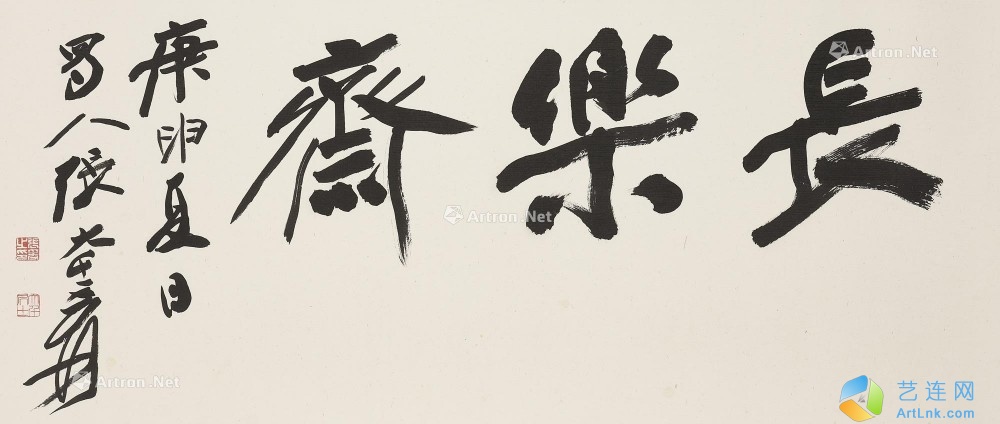 長樂齋
庚申夏日
蜀人張大千爰
Artron.Net
Artron.Net
Artron.Net
艺连网
ArtLnk.com